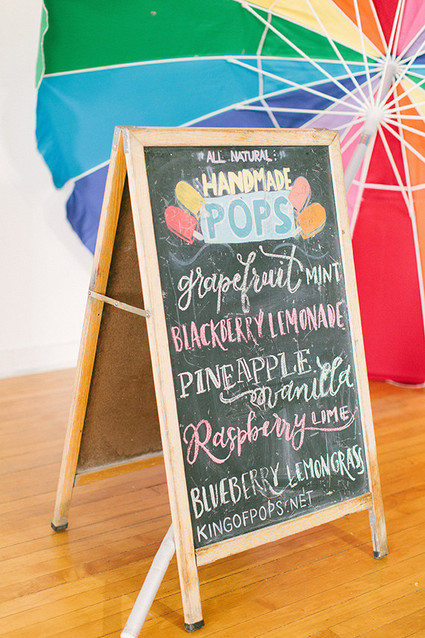 ALL NATURAL
HANDMADE
POPS
grapefruit MINT
BLACKBERRY LEMONADE
PINEAPPLE
vanilla
Raspberry LIME
BLUEBERRY LEMONGRASS
KINGOFPOPS.NET